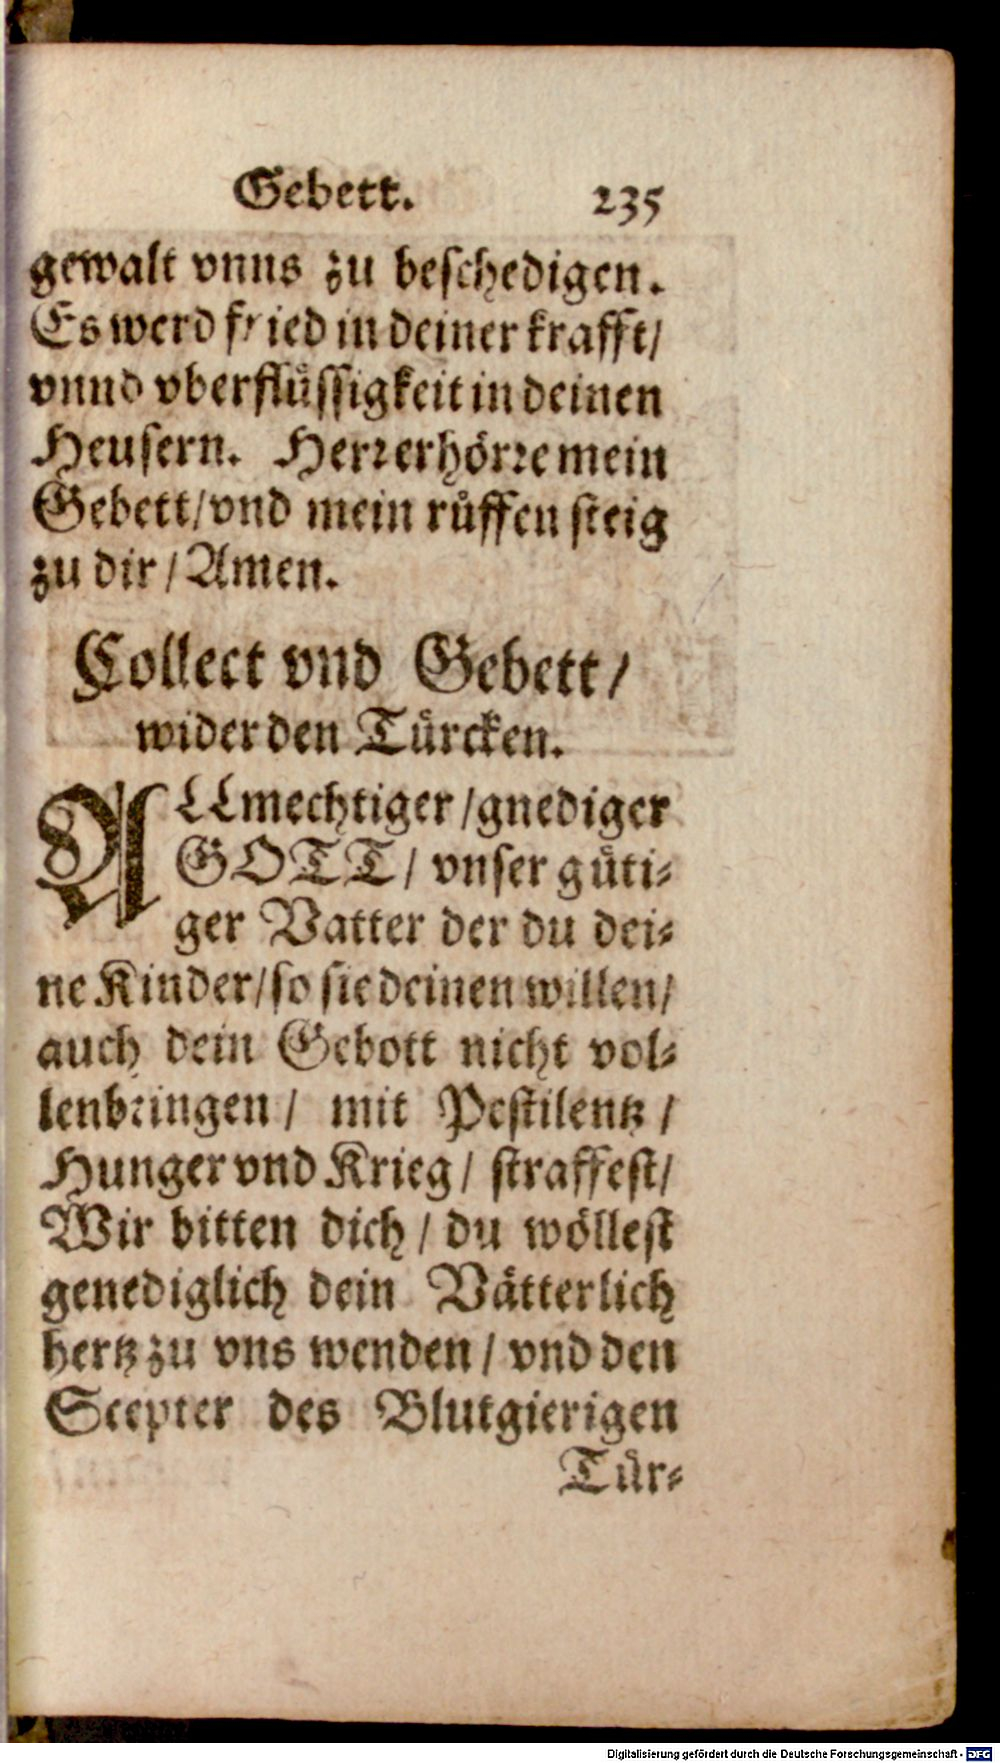 Gebett. 235
gewalt vnns zu beschedigen.
Es werd fried in deiner krafft/
vnnd vberflüssigkeit in deinen
Heusern. Herr erhörre mein
Gebett/vnd mein růffen steig
zu dir/Amen.
Collect vnd Gebett/
wider den Türcken.
ALLmechtiger/gnediger
GOTT/ vnser güti-
ger Vatter der du dei-
ne Kinder/so sie deinen willen/
auch dein Gebott nicht vol-
lenbringen/ mit Pestilentz/
Hunger vnd Krieg/ straffest/
Wir bitten dich/ du wöllest
genediglich dein Vätterlich
hertz zu vns wenden/ vnd den
Scepter des Blutgierigen
Tür-
Digitalisierung gefördert durch die Deutsche Forschungsgemeinschaft - DFG